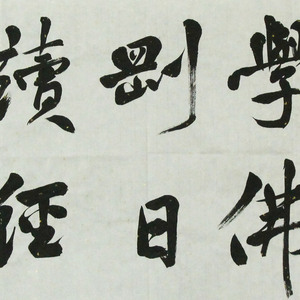 學佛
剛日
讀經